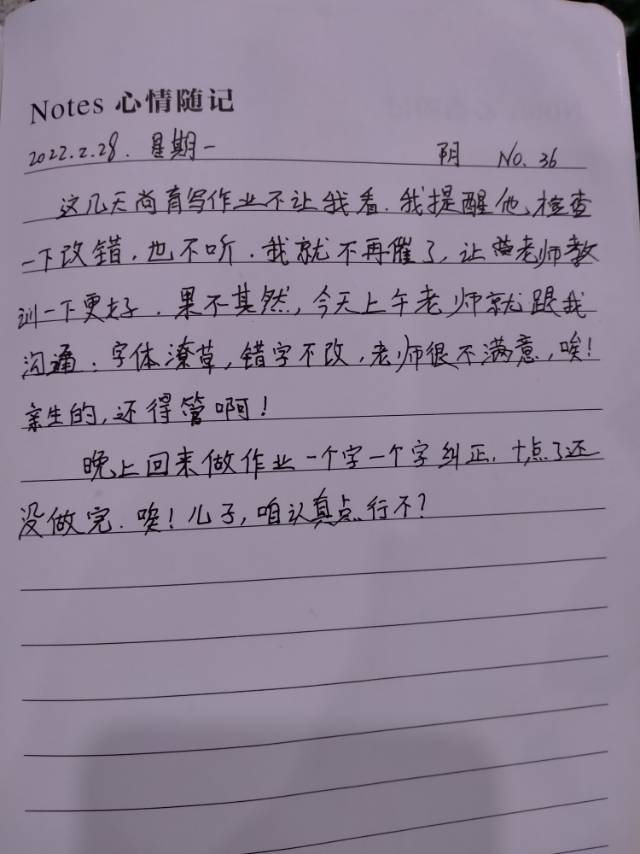 Notes 心情随记
2022.2.28. 星期一 阴 No. 36
这几天尚育写作业不让我看.我提醒他,检查
一下改错,也不听.我就不再催了,让老师教
训一下更好.果不其然,今天上午老师就跟我
沟通:字体潦草,错字不改,老师很不满意,唉!
亲生的,还得管啊!
晚上回来做作业一个字一个字纠正.十点了还
没做完.唉!儿子,咱认真点行不?